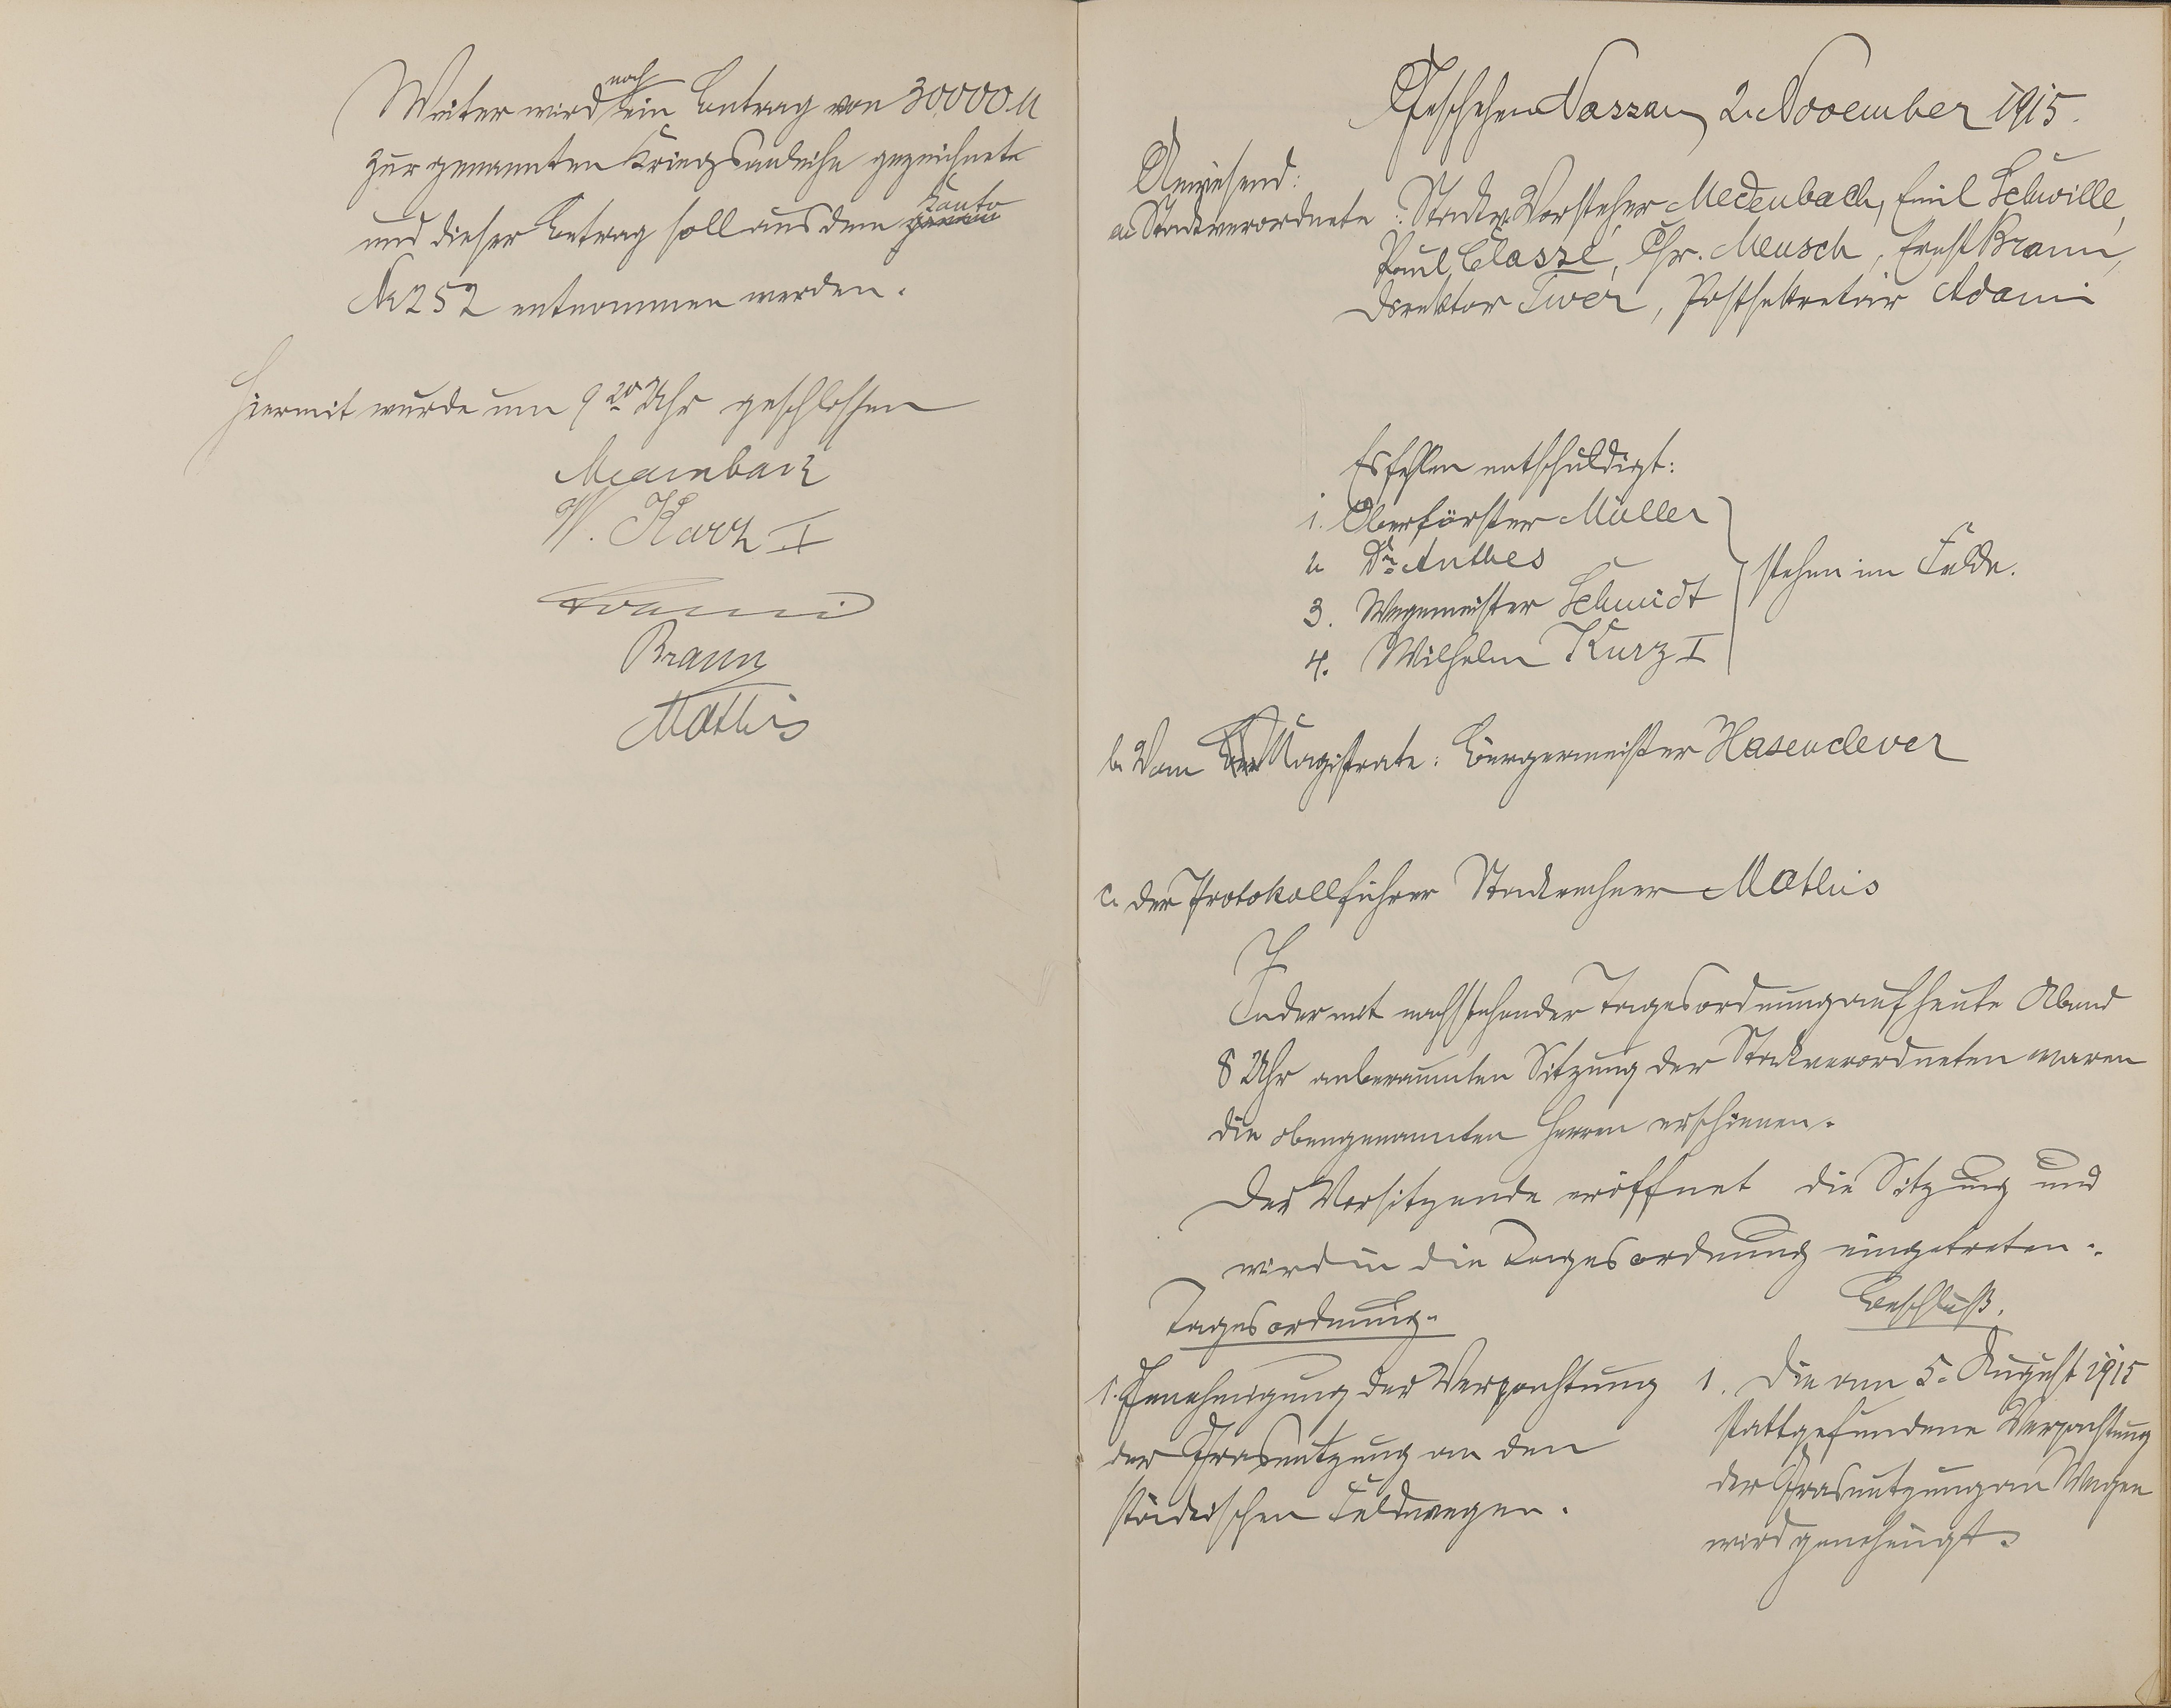 Weiter wird noch ein Betrag von 30000 M
zur genannten Kriegsanleihe gezeichnet
und dieser Betrag soll aus dem Konto
No 252 entnommen werden.
Hiermit wurde um 9 20 Uhr geschlossen
Medenbach
W. Kurz I
Adami
Braun
Mathis
Geschehen Nassau, 2. November 1915.
Anwesend:
a. Stadtverordnete: Stadtv. Vorsteher Medenbach, Emil Schwille,
Paul Classe, Chr. Meusch, Ernst Braun,
Direktor Twer, Postsekretär Adami
Es fehlen entschuldigt:
1. Oberförster Müller
2. Dr. Anthes
3. Wegemeister Schmidt
4. Wilhelm Kurz I
stehen im Felde.
b. Vom Magistrate: Bürgermeister Hasenclever
c. der Protokollführer Stadtrechner Mathis
In der mit nachstehender Tagesordnung auf heute Abend
8 Uhr anberaumten Sitzung der Stadtverordneten waren
die obengenannten Herren erschienen.
Der Vorsitzende eröffnet die Sitzung und
wird in die Tagesordnung eingetreten.
Tagesordnung.
1. Genehmigung der Verpachtung
der Grasnutzung an den
städtischen Feldwegen.
Beschluß.
1. Die am 5. August 1915
stattgefundene Verpachtung
der Grasnutzung an Wegen
wird genehmigt.